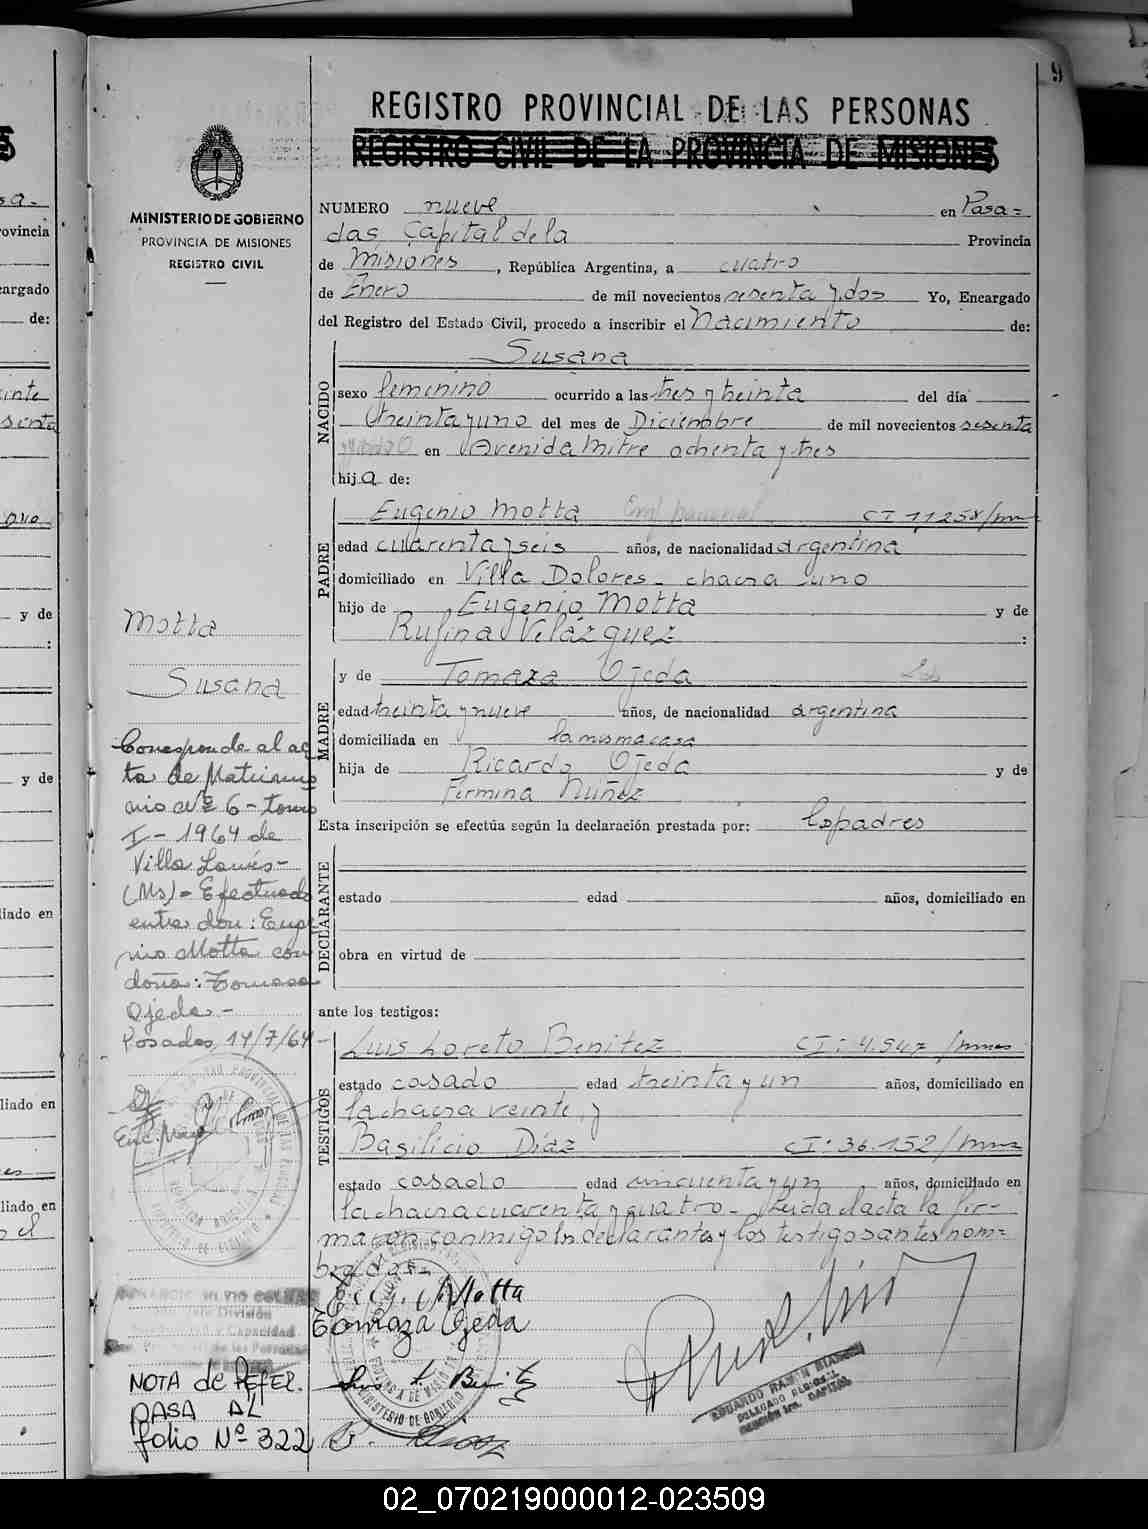 9
REGISTRO PROVINCIAL DE LAS PERSONAS
REGISTRO CIVIL DE LA PROVINCIA DE MISIONES
MINISTERIO DE GOBIERNO
PROVINCIA DE MISIONES
REGISTRO CIVIL
NUMERO nueve en Posa=
das, Capital de la Provincia
de Misiones, República Argentina, a cuatro
de Enero de mil novecientos sesenta y dos Yo, Encargado
del Registro del Estado Civil, procedo a inscribir el Nacimiento de:
NACIDO
Susana
sexo femenino ocurrido a las tres y treinta del día
treinta y uno del mes de Diciembre de mil novecientos sesenta
en Avenida Mitre ochenta y tres
hija de:
PADRE
Eugenio Motta CI 11258/
edad cuarenta y seis años, de nacionalidad argentina
domiciliado en Villa Dolores - chacra uno
hijo de Eugenio Motta y de
Rufina Velázquez :
MADRE
y de Tomaza Ojeda
edad treinta y nueve años, de nacionalidad argentina
domiciliada en la misma casa
hija de Ricardo Ojeda y de
Firmina Nuñez
Esta inscripción se efectúa según la declaración prestada por: los padres
DECLARANTE
estado edad años, domiciliado en
obra en virtud de
ante los testigos:
TESTIGOS
Luis Loreto Benitez CI: 4.947
estado casado edad treinta y un años, domiciliado en
la chacra veinte, y
Basilicio Díaz CI: 36.152/
estado casado edad cincuenta y un años, domiciliado en
la chacra cuarenta y cuatro - leida el acta la fir-
maron conmigo los declarantes y los testigos antes nom=
brados=
Motta
Tomaza Ojeda
EDUARDO RAMON BIANCHI
DELEGADO REGIONAL
Motta
Susana
Corresponde al ac
ta de Matrimo
nio Nº 6 - tomo
I - 1964 de
Villa Lanús -
(Ms) = Efectuado
entre don: Euge
nio Motta con
doña: Tomasa
Ojeda.-
Posadas, 14/7/64 -
NOTA de REFER.
PASA AL
folio Nº 322
ovincia
cargado
de:
y de
:
y de
liado en
liado en
liado en
02_070219000012-023509